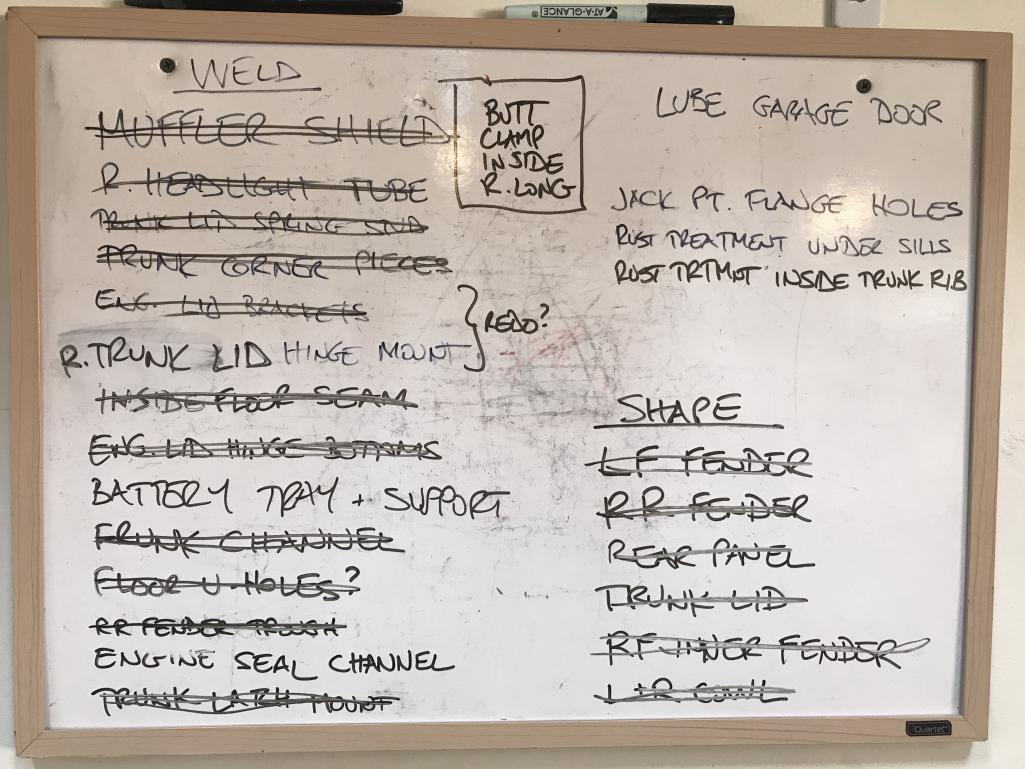 AT-A-GLANCE
WELD
MUFFLER SHIELD
R. HEADLIGHT TUBE
TRUNK LID SPRING STUD
TRUNK CORNER PIECES
ENG. LID BRACKETS
R. TRUNK LID HINGE MOUNT
REDO?
INSIDE FLOOR SEAM
ENG. LID HINGE BOTTOMS
BATTERY TRAY + SUPPORT
FRUNK CHANNEL
FLOOR U-HOLES?
RR FENDER TROUGH
ENGINE SEAL CHANNEL
TRUNK LATCH MOUNT
BUTT
CLAMP
INSIDE
R. LONG
LUBE GARAGE DOOR
JACK PT. FLANGE HOLES
RUST TREATMENT UNDER SILLS
RUST TRTMNT INSIDE TRUNK RIB
SHAPE
LF FENDER
RR FENDER
REAR PANEL
TRUNK LID
RF INNER FENDER
L+R COWL
Quartet